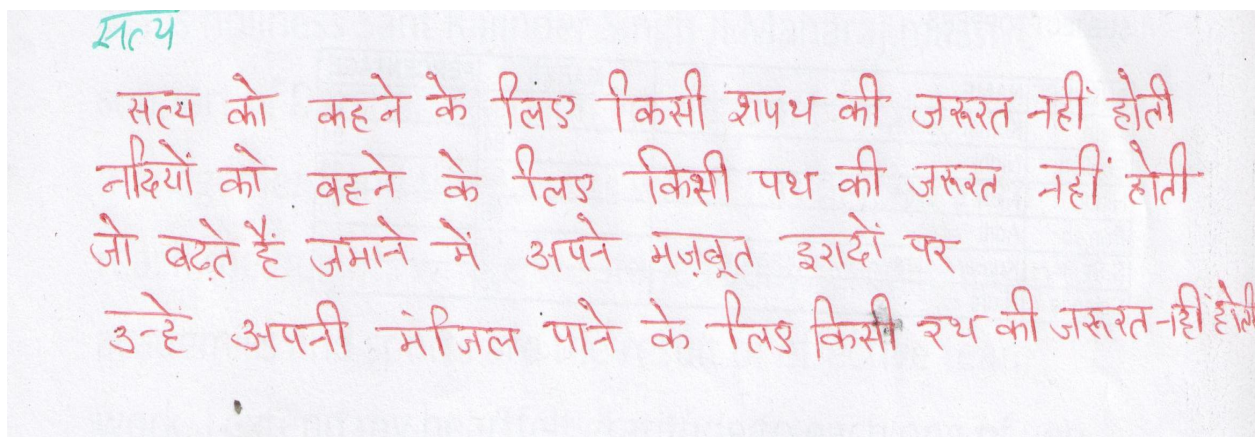 सत्य
सत्य को कहने के लिए किसी शपथ की ज़रूरत नहीं होती
नदियों को बहने के लिए किसी पथ की ज़रूरत नहीं होती
जो बढ़ते हैं ज़माने में अपने मज़बूत इरादों पर
उन्हें अपनी मंजिल पाने के लिए किसी रथ की जरूरत नहीं होती